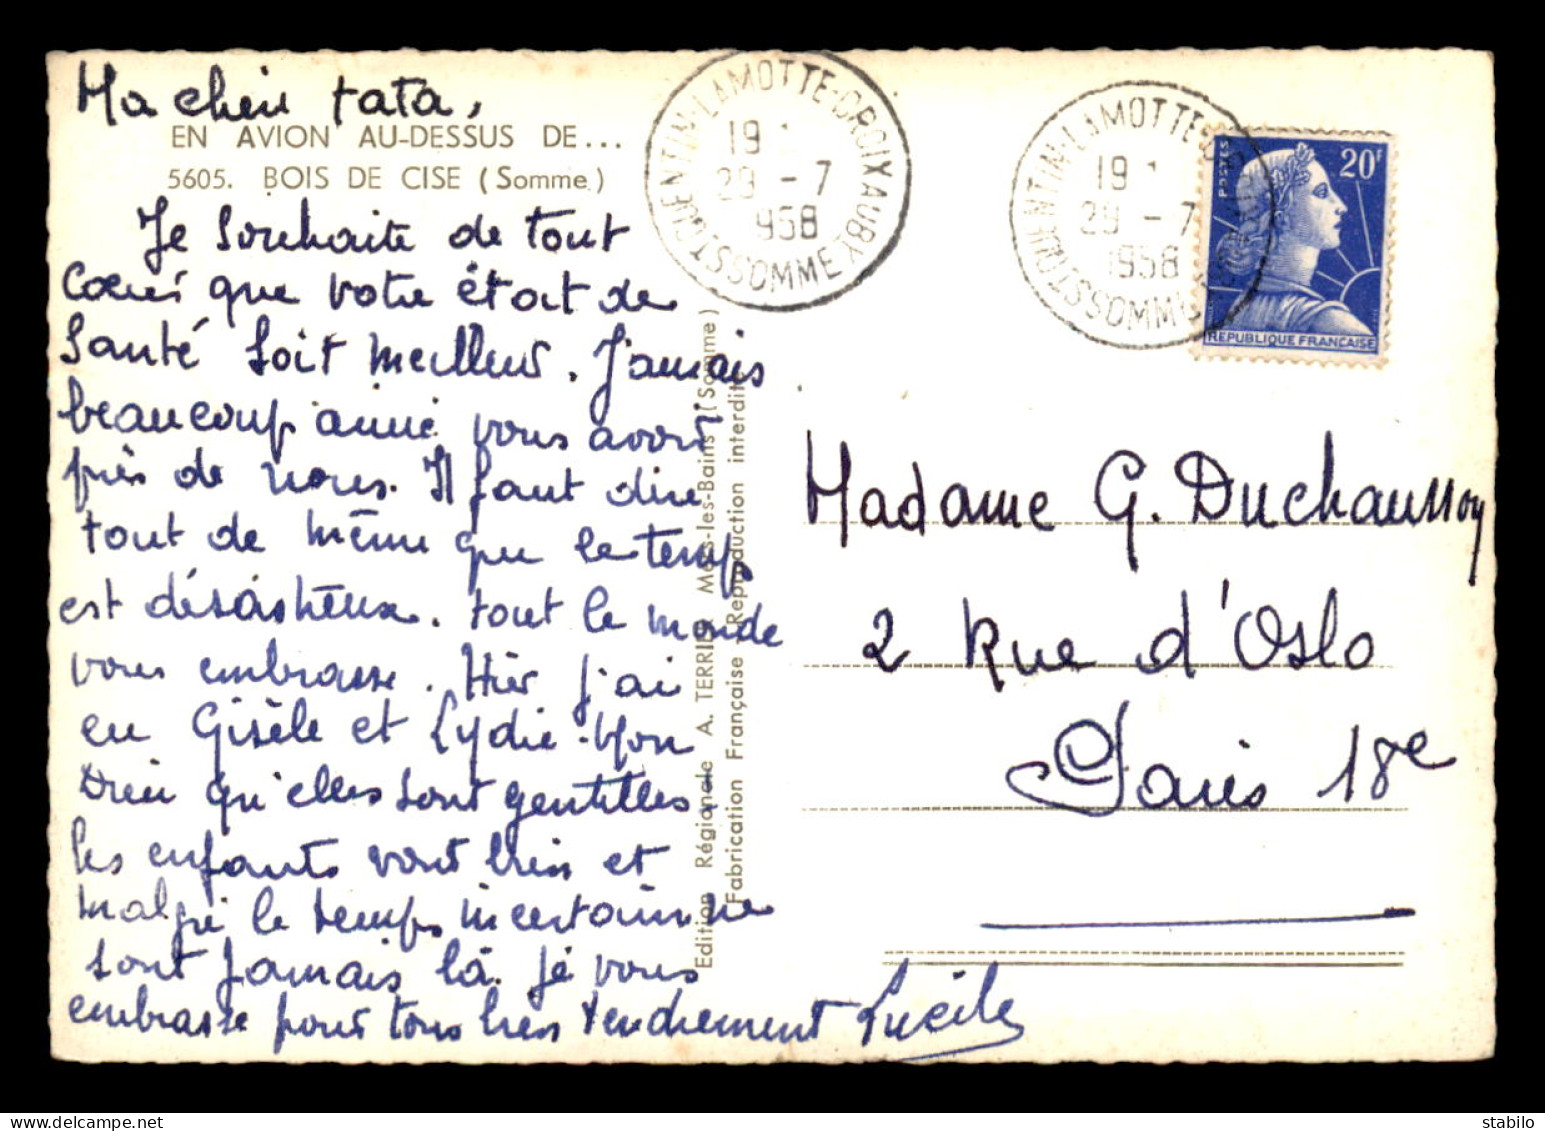 Ma chère tata,
EN AVION AU-DESSUS DE...
5605. BOIS DE CISE (Somme)
Je Souhaite de tout
Cœur que votre état de
Santé Soit meilleur. J'amais
beaucoup aimé vous avoir
près de nous. Il faut dire
tout de même que le temps
est désastreux. tout le monde
vous embrasse. Hier j'ai
eu Gisèle et Lydie. Mon
Dieu qu'elles sont gentilles
les enfants vont bien et
malgré le temps incertain ne
sont jamais là. Je vous
embrasse pour tous bien tendrement Lucile
Edition Régionale A. TERRIER Mers-les-Bains (Somme)
Fabrication Française - Reproduction interdite
ST QUENTIN-LAMOTTE-CROIX AU BY SOMME
19
29 - 7
1958
ST QUENTIN-LAMOTTE-CROIX AU BY SOMME
19
29 - 7
1958
POSTES
20F
REPUBLIQUE FRANÇAISE
Madame G. Duchaussoy
2 Rue d'Oslo
Paris 18e
stabilo